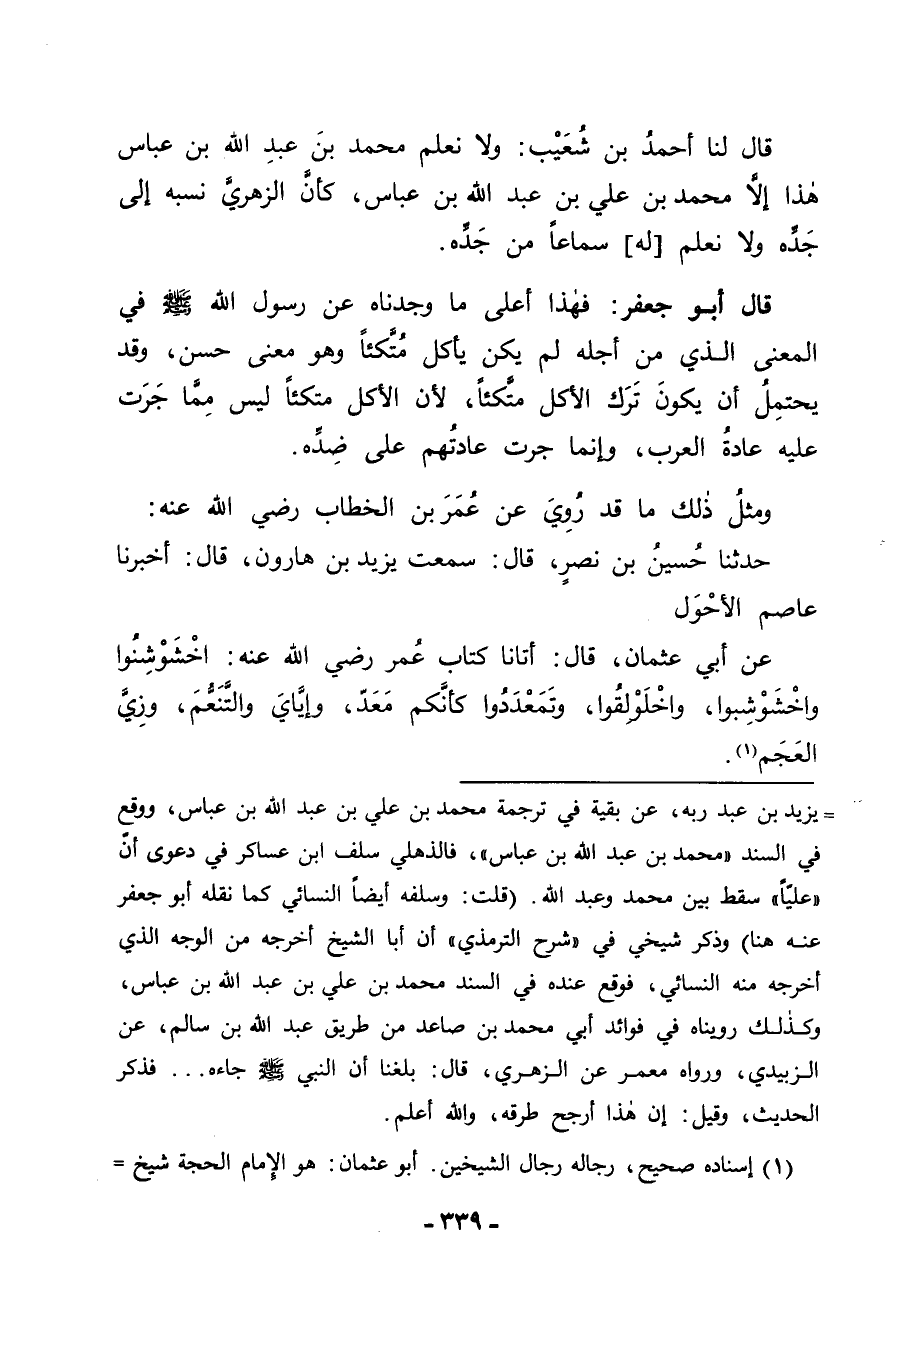 قال لنا أحمدُ بن شُعَيْب: ولا نعلم محمد بنَ عبدِ الله بن عباس
هٰذا إلَّا محمد بن علي بن عبد الله بن عباس، كأنَّ الزهريَّ نسبه إلى
جَدِّه ولا نعلم [له] سماعاً من جَدِّه.
قال أبو جعفر: فهٰذا أعلى ما وجدناه عن رسول الله ﷺ في
المعنى الذي من أجله لم يكن يأكل مُتَّكئاً وهو معنى حسن، وقد
يحتمِلُ أن يكونَ تَرَك الأكل متَّكئاً، لأن الأكل متكئاً ليس مِمَّا جَرَت
عليه عادةُ العرب، وإنما جرت عادتُهم على ضِدِّه.
ومثلُ ذٰلك ما قد رُوِيَ عن عُمَرَ بن الخطاب رضي الله عنه:
حدثنا حُسينُ بن نصرٍ، قال: سمعت يزيد بن هارون، قال: أخبرنا
عاصم الأحْوَل
عن أبي عثمان، قال: أتانا كتاب عُمر رضي الله عنه: اخْشَوْشِنُوا
واخْشَوْشِبوا، واخْلَوْلِقُوا، وتَمَعْدَدُوا كأنَّكم مَعَدّ، وإيَّايَ والتَّنَعُّمَ، وزِيَّ
العَجَم(١).
= يزيد بن عبد ربه، عن بقية في ترجمة محمد بن علي بن عبد الله بن عباس، ووقع
في السند «محمد بن عبد الله بن عباس»، فالذهلي سلف ابن عساكر في دعوى أنّ
«عليّاً» سقط بين محمد وعبد الله. (قلت: وسلفه أيضاً النسائي كما نقله أبو جعفر
عنه هنا) وذكر شيخي في «شرح الترمذي» أن أبا الشيخ أخرجه من الوجه الذي
أخرجه منه النسائي، فوقع عنده في السند محمد بن علي بن عبد الله بن عباس،
وكذٰلك رويناه في فوائد أبي محمد بن صاعد من طريق عبد الله بن سالم، عن
الزبيدي، ورواه معمر عن الزهري، قال: بلغنا أن النبي ﷺ جاءه... فذكر
الحديث، وقيل: إن هٰذا أرجح طرقه، والله أعلم.
(١) إسناده صحيح، رجاله رجال الشيخين. أبو عثمان: هو الإمام الحجة شيخ =
- ٣٣٩ -